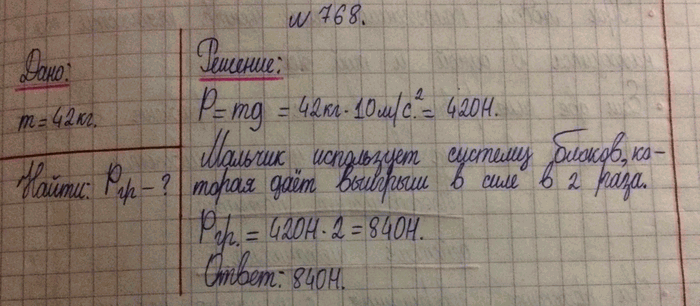 № 768.
Дано:
m = 42кг.
Найти: Pгр - ?
Решение:
P = mg = 42кг · 10м/с.² = 420Н.
Мальчик использует систему блоков, ко-
торая даёт выигрыш в силе в 2 раза.
Pгр. = 420Н · 2 = 840Н.
Ответ: 840Н.